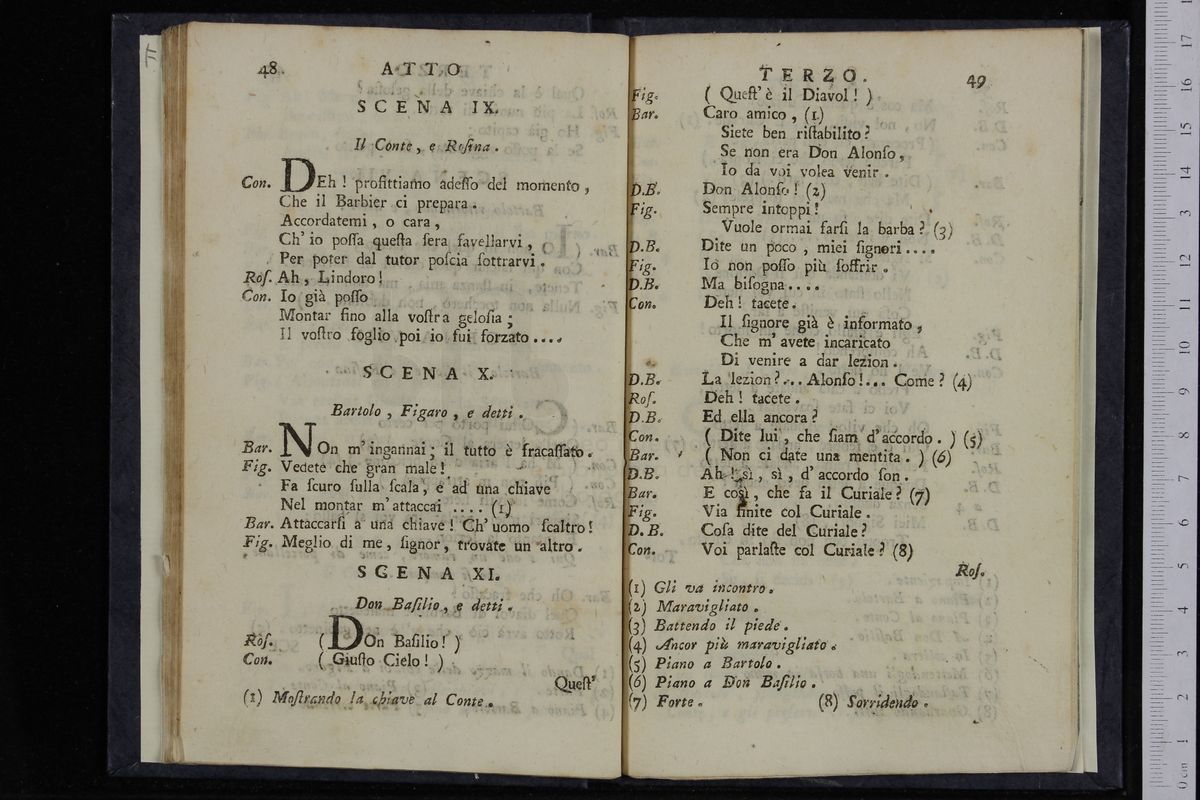 48. ATTO
SCENA IX.
Il Conte, e Rosina.
Con. DEh! profittiamo adeſſo del momento,
Che il Barbier ci prepara.
Accordatemi, o cara,
Ch' io poſſa queſta ſera favellarvi,
Per poter dal tutor poſcia ſottrarvi.
Roſ. Ah, Lindoro!
Con. Io già poſſo
Montar fino alla voſtra geloſia;
Il voſtro foglio poi io fui forzato....
SCENA X.
Bartolo, Figaro, e detti.
Bar. NOn m' ingannai; il tutto è fracaſſato.
Fig. Vedete che gran male!
Fa ſcuro ſulla ſcala, e ad una chiave
Nel montar m' attaccai .... (1)
Bar. Attaccarſi a una chiave! Ch' uomo ſcaltro!
Fig. Meglio di me, ſignor, trovate un altro.
SCENA XI.
Don Baſilio, e detti.
Roſ. ( DOn Baſilio! )
Con. ( Giuſto Cielo! )
Queſt'
(1) Moſtrando la chiave al Conte.
TERZO. 49
Fig. ( Queſt' è il Diavol! )
Bar. Caro amico, (1)
Siete ben riſtabilito?
Se non era Don Alonſo,
Io da voi volea venir.
D.B. Don Alonſo! (2)
Fig. Sempre intoppi!
Vuole ormai farſi la barba? (3)
D.B. Dite un poco, miei ſignori....
Fig. Io non poſſo più ſoffrir.
D.B. Ma biſogna....
Con. Deh! tacete.
Il ſignore già è informato,
Che m' avete incaricato
Di venire a dar lezion.
D.B. La lezion?... Alonſo!... Come? (4)
Roſ. Deh! tacete.
D.B. Ed ella ancora?
Con. ( Dite lui, che ſiam d' accordo. ) (5)
Bar. ( Non ci date una mentita. ) (6)
D.B. Ah! sì, sì, d' accordo ſon.
Bar. E così, che fa il Curiale? (7)
Fig. Via finite col Curiale.
D.B. Coſa dite del Curiale?
Con. Voi parlaſte col Curiale? (8)
Roſ.
(1) Gli va incontro.
(2) Maravigliato.
(3) Battendo il piede.
(4) Ancor più maravigliato.
(5) Piano a Bartolo.
(6) Piano a Don Baſilio.
(7) Forte. (8) Sorridendo.